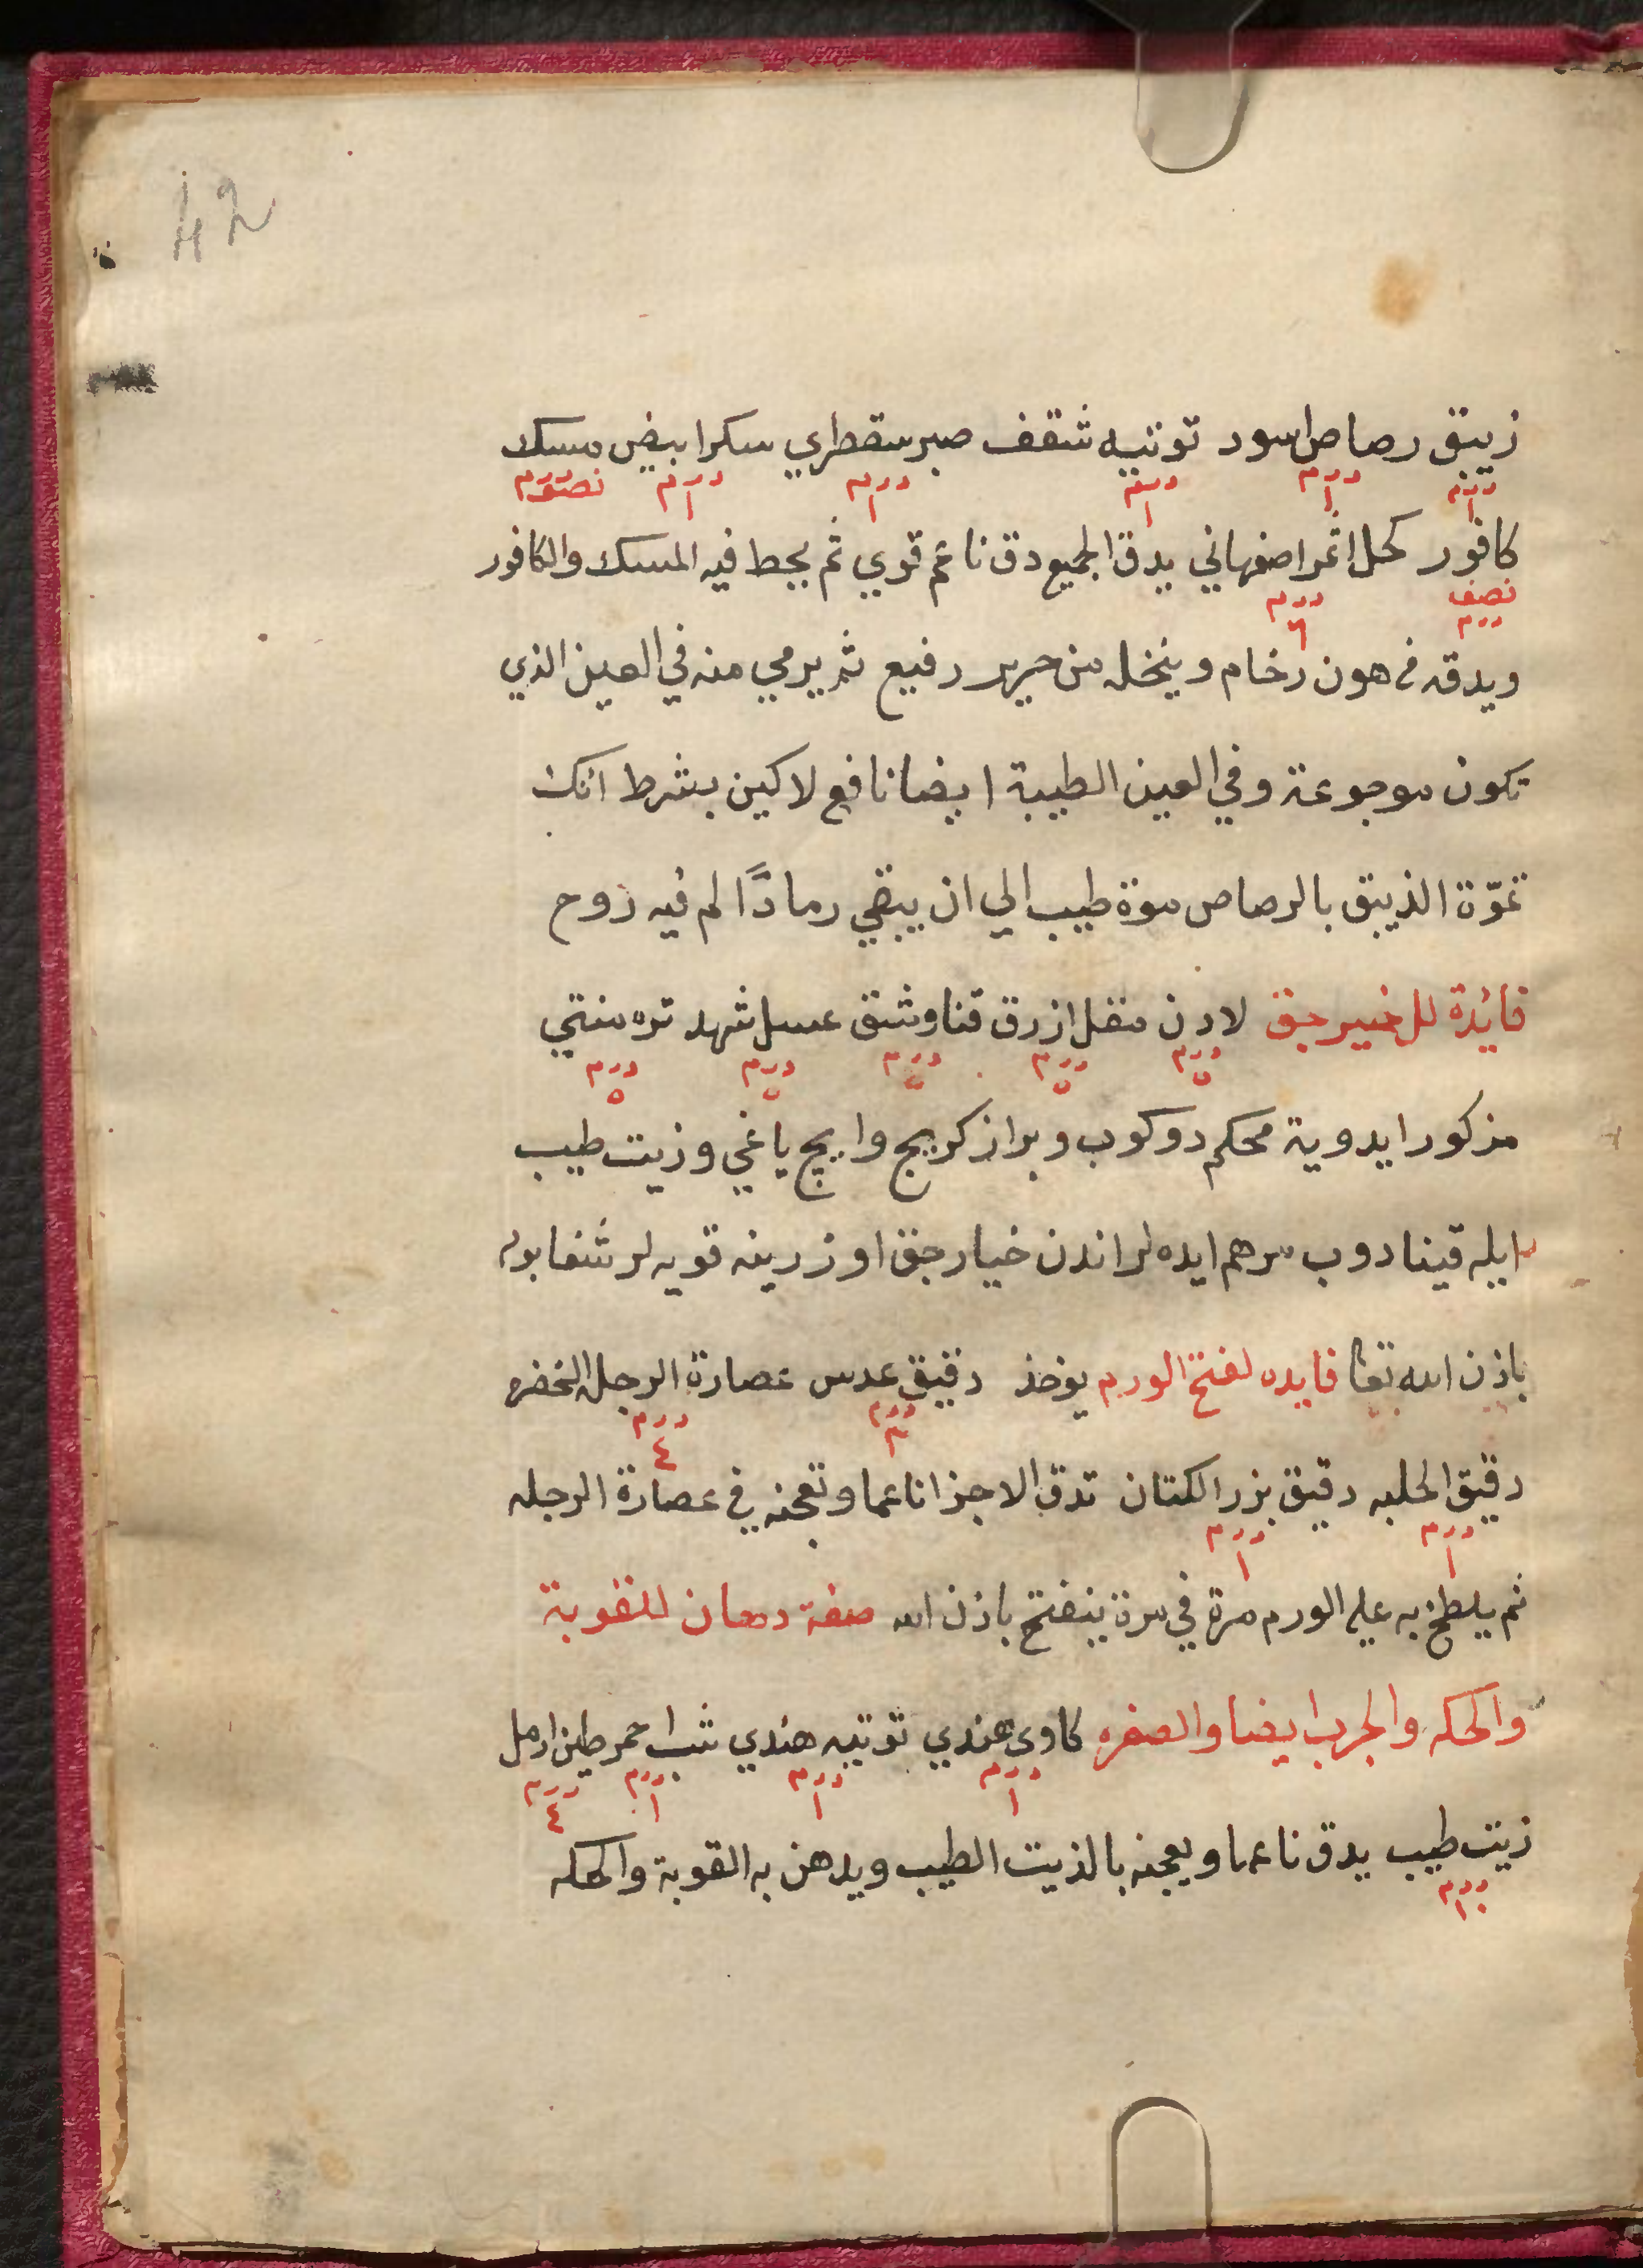 42
زيبق رصاص اسود توتيه شقف صبر سقطري سكر ابيض مسك
درم ١ درم ١ درم ١ درم ١ درم ١ نصف درم
كافور كحل اثمر اصفهاني يدق الجميع دق ناعم قوي ثم يحط فيه المسك والكافور
نصف درم درم ٦
ويدقه في هون رخام وينخله من حرير رفيع ثم يرمي منه في العين الذي
تكون موجوعة وفي العين الطيبة ايضا نافع لاكين بشرط انك
تموّة الذيبق بالرصاص موة طيب الي ان يبقي رمادًا لم فيه روح
فائدة للخيرجق لادن مقل ازرق قناوشق عسل شهد تره منتي
درم ٥ درم ٥ درم ٥ درم ٥ درم ٥
مزكور ايدوية محكم دوكوب وبراز كريج وايج ياغي وزيت طيب
ايله قينادوب مرهم ايده لر اندن خيارجق اوزرينه قويه لر شفا بولر
باذن الله تعا فايده لفتح الورم يوخذ دقيق عدس عصارة الرجله الخضره
درم ٣ درم ٤
دقيق الحلبه دقيق بزر الكتان تدق الاجزا ناعما وتعجنه في عصارة الرجله
درم ١ درم ١
ثم يلطخ به علي الورم مرة في مرة ينفتح باذن الله صفة دهان للقوبة
والحكه والجرب ايضا والصفره كاوي هندي توتيه هندي شب احمر طين ارمل
درم ١ درم ١ درم ١ درم ٤
زيت طيب يدق ناعما ويعجنه بالذيت الطيب ويدهن به القوبة والحكه
درم ١٠